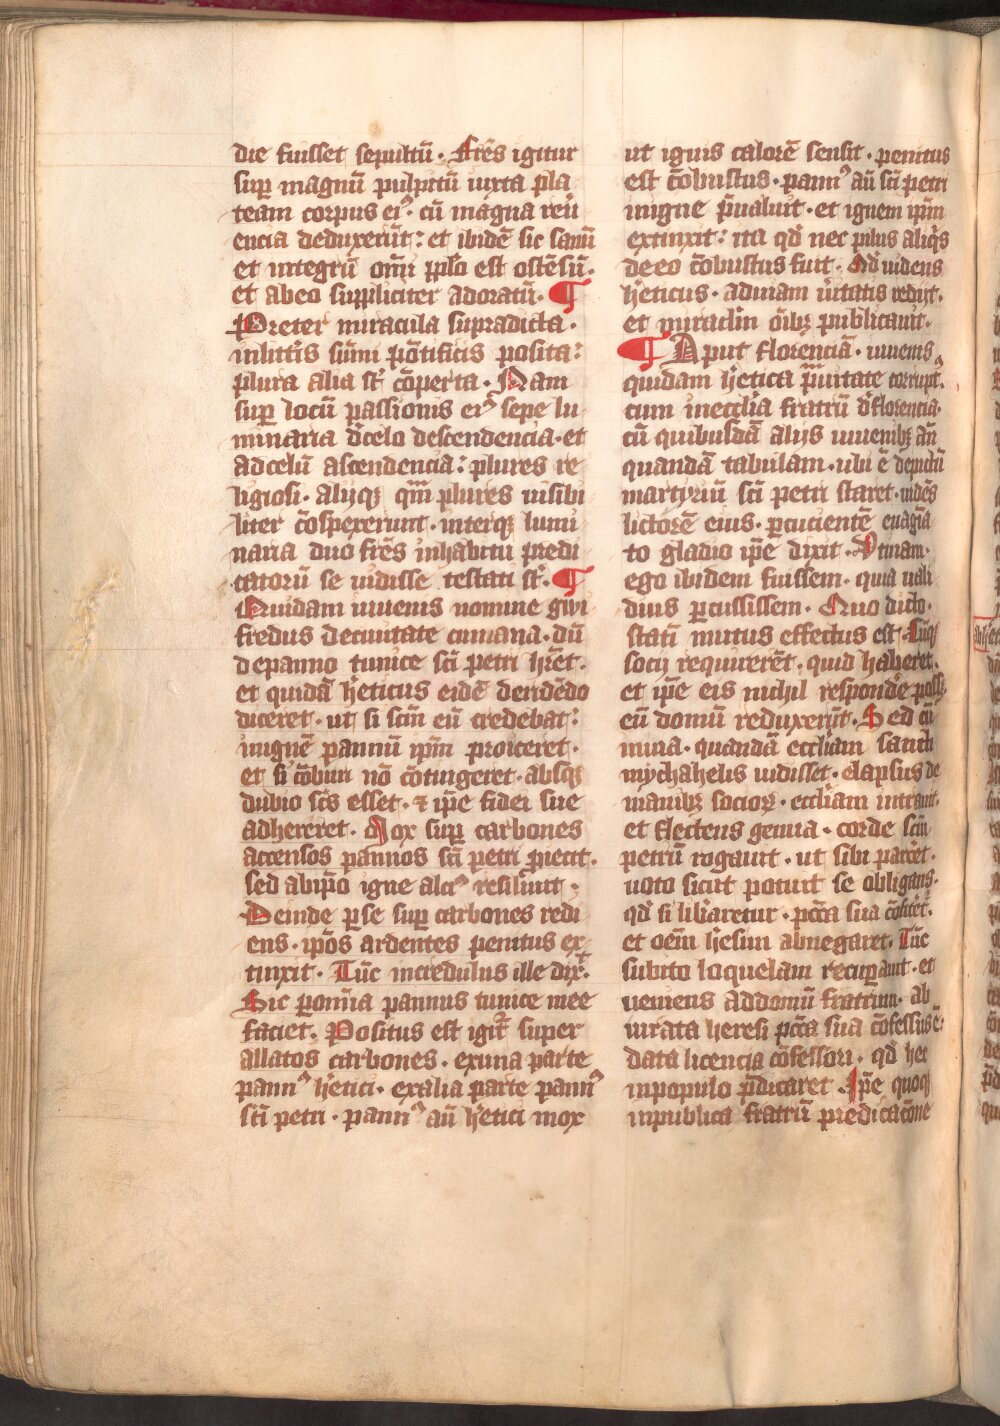 die fuisset sepultū. Fr̄es igitur
sup̱ magnū pulpitū iuxta pla
team corpus eiꝰ. cū magna reū
encia deduxerūt: et ibidē sic sanū
et integrū om̄i pp̄lo est ostēsū.
et abeo suppliciter adoratū. ¶
Preter miracula supradicta.
inlitt̄is sūmi pōtificis posita:
plura alia st̄ cōperta. Nam
sup̱ locū passionis eiꝰ sepe lu
minaria d̄celo descendencia. et
adcelū ascendencia: plures re
ligiosi. alijqꝫ qm̄ plures uisibi
liter cōspexerunt. interqꝫ lumi
naria duo fr̄es inhabitu predi
catorū se uidisse testati st̄. ¶
Quidam iuuenis nomine gwi
fredus deciuitate cumana. dū
depanno tunice sc̄i petri hr̄et.
et quidā h̄eticus eidē deridēdo
diceret. ut si sc̄m eū credebat:
inignē pannū ip̄m proiceret.
et si cōburi nō cōtingeret. absqꝫ
dubio sc̄s esset. ⁊ ip̄e fidei sue
adhereret. Mox sup̱ carbones
accensos pannos sc̄i petri ꝓiecit.
sed abip̄o igne alciꝰ resiliuit.
Deinde ꝑse sup̱ carbones redi
ens. ip̄os ardentes penitus ex
tinxit. Tūc incredulus ille dix̄.
Sic ꝑom̄ia pannus tunice mee
faciet. Positus est igit̄ super
allatos carbones. exuna parte
pannꝰ h̄etici. exalia parte pannꝰ
sc̄i petri. pannꝰ aū h̄etici mox
ut ignis calorē sensit. penitus
est cōbustus. pannꝰ aū sc̄i petri
inigne p̄ualuit. et ignem ip̄m
extinxit: ita qd̄ nec pilus aliqͥs
deeo cōbustus fuit. Qd̄ uidens
h̄eticus. aduiam ūitatis redijt.
et miracl̄m ōibꝫ publicauit.
¶ Aput florenciā. iuuenis
quidam h̄etica p̄uitate corrupt.
cum inecc̄lia fratrū d̄florencia.
cū quibusdā alijs iuuenibꝫ an̄
quandā tabulam. ubi ē depictū
martyriū sc̄i petri staret. uidēs
lictorē eius. ꝑcucientē euagīa
to gladio ip̄e dixit. Utinam.
ego ibidem fuissem. quia uali
dius ꝑcussissem. Quo dicto.
statī mutus effectus est. Cūqꝫ
socij requirerēt. quid haberet.
et ip̄e eis nichil respondē posset
eū domū reduxerūt. Sed cū
inuia. quandā ecc̄liam sancti
mychahelis uidisset. elapsus de
manibꝫ socioꝝ. ecc̄liam intrauit.
et flectens genua. corde sc̄m
petrū rogauit. ut sibi parcet̄.
uoto sicut potuit se obligans.
qd̄ si lib̄aretur. pcc̄a sua cōfitet̄.
et oēm h̄esim abnegaret. Tūc
subito loquelam recup̱auit. et
ueniens addomū fratrum. ab
iurata heresi pcc̄a sua cōfessus ē.
data licencia cōfessori. qd̄ hec
inpopulo p̄dicaret. Ip̄e quoqꝫ
inpublica fratrū predicacōne